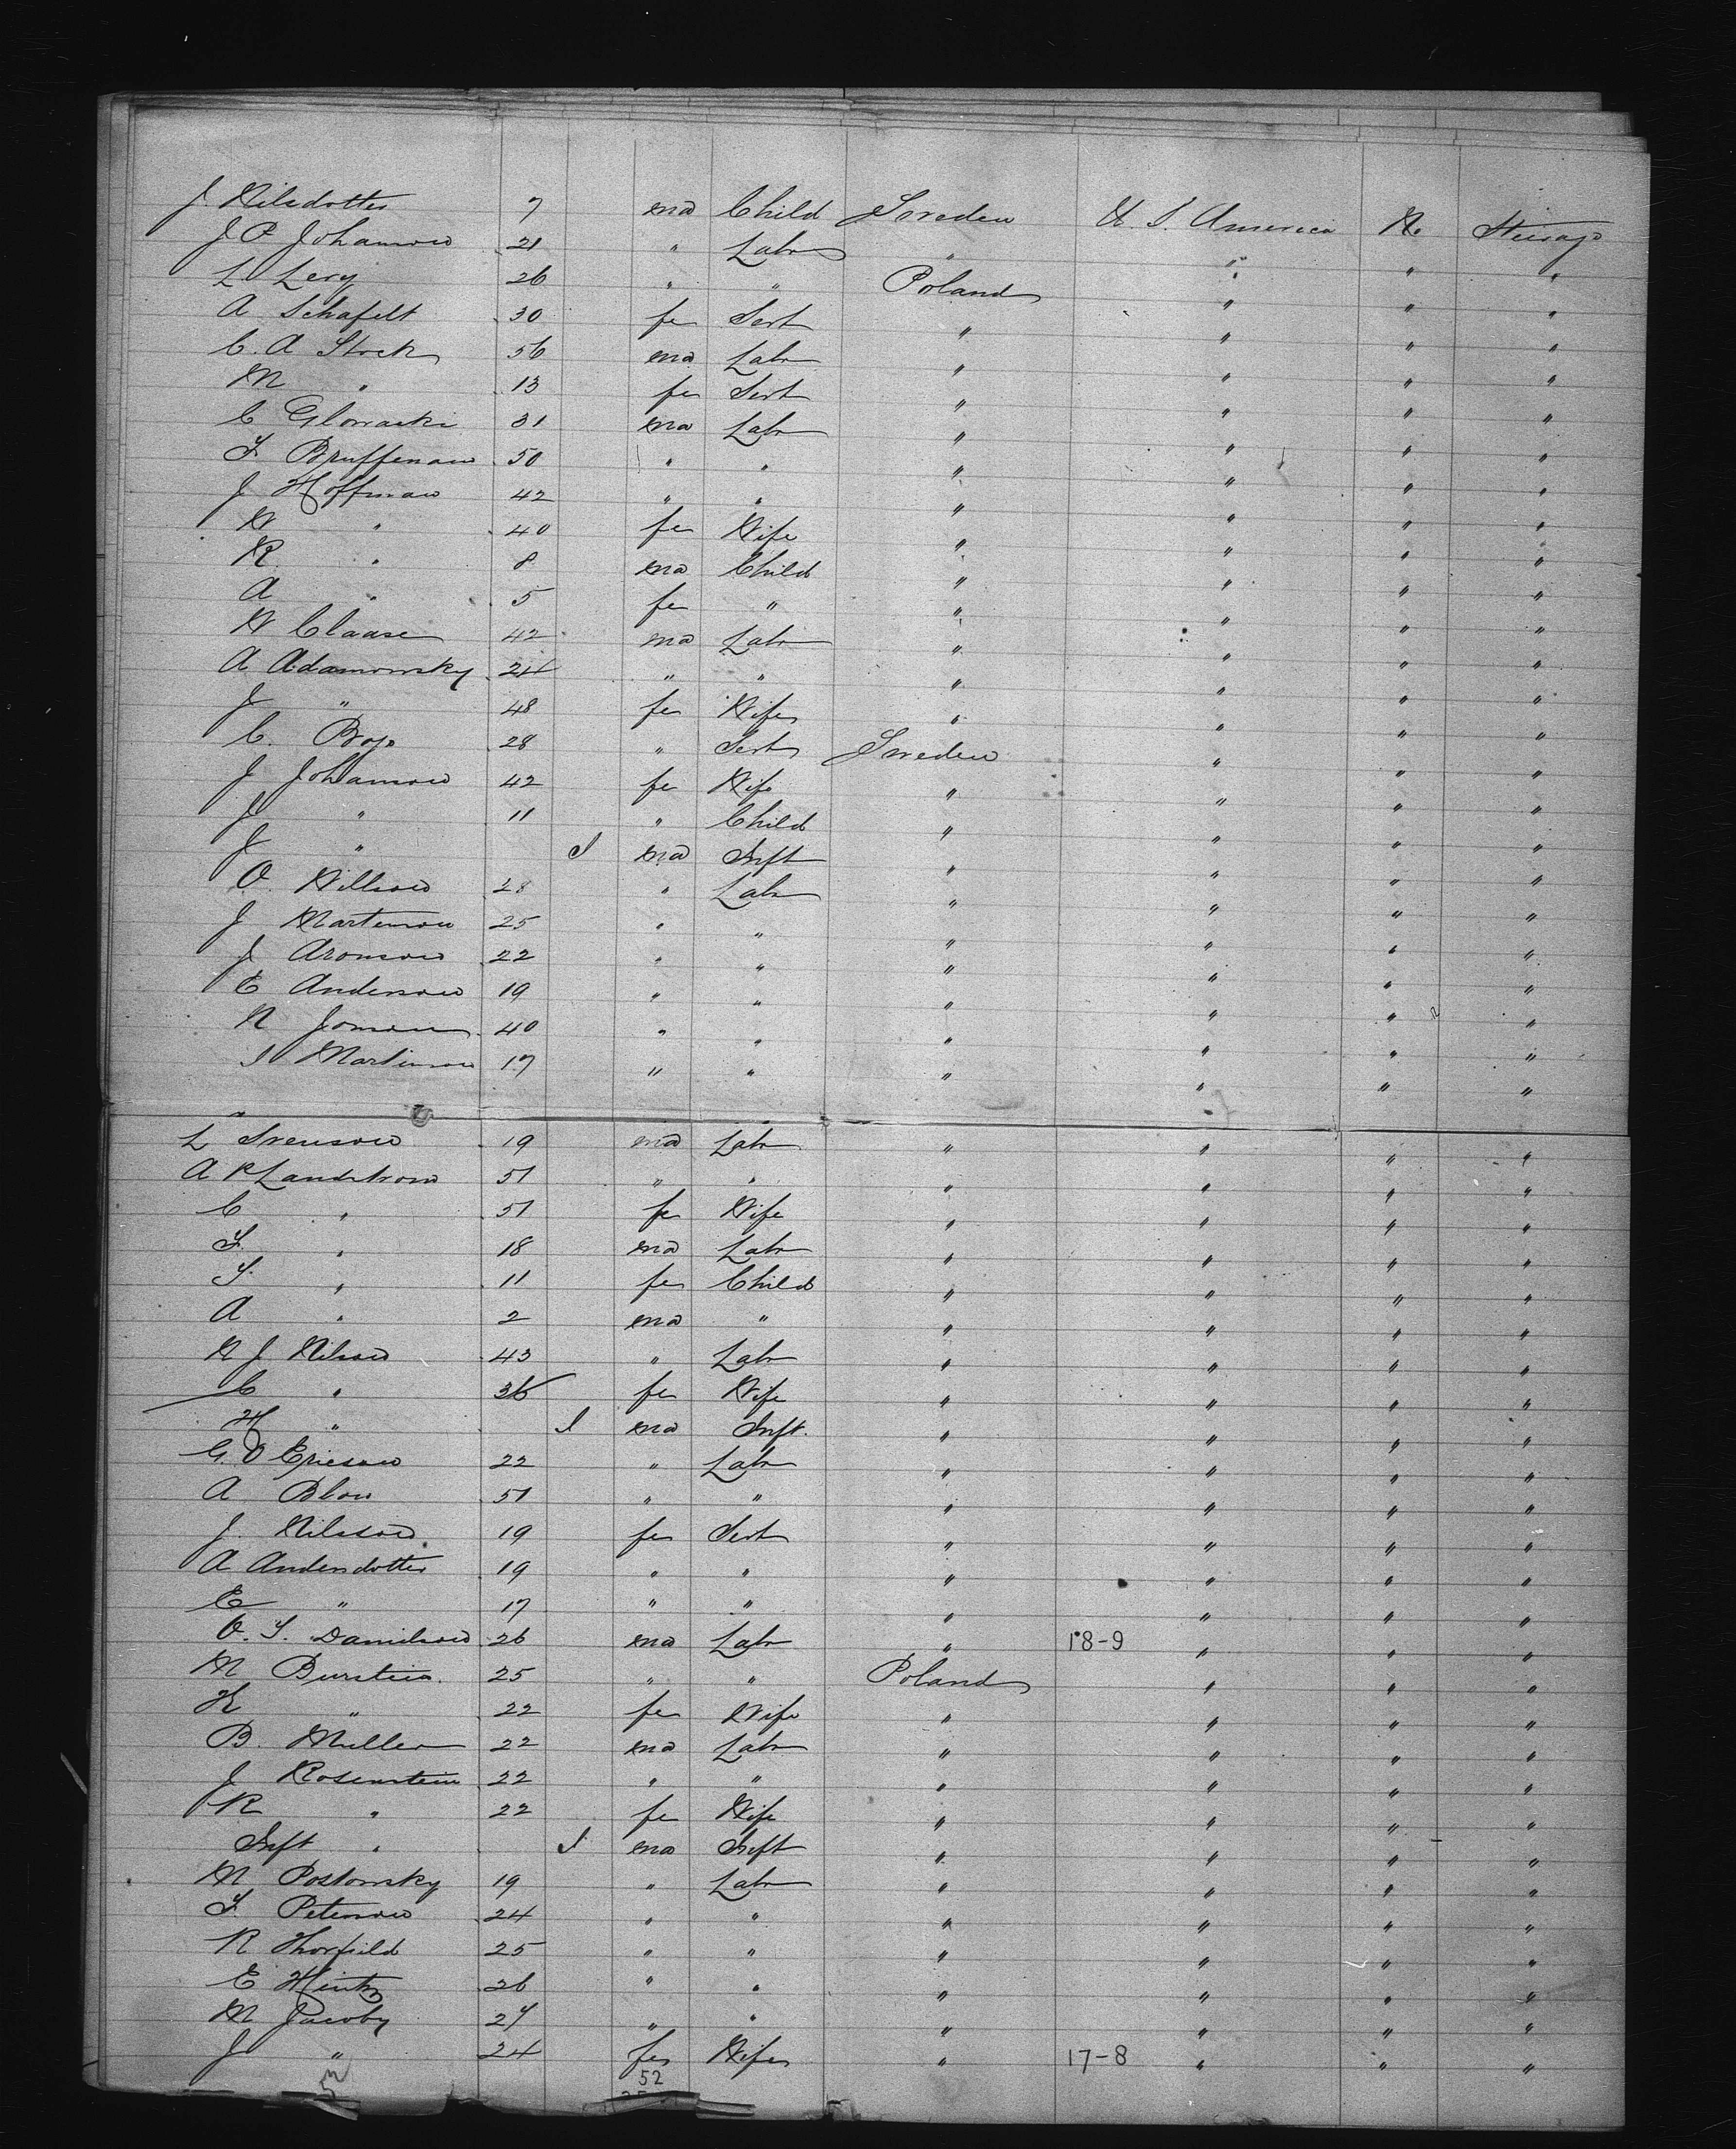 J. Nilsdotter 7 ma Child Sweden U. S. America No Steerage
J P Johanson 21 " Labr " " " "
L Levy 26 " " Poland " " "
A Schafelt 30 fe Servt " " " "
C. A Stock 56 ma Labr " " " "
M " 13 fe Servt " " " "
C Glowacki 31 ma Labr " " " "
F Bruffenau 50 " " " " " "
J Hoffman 42 " " " " " "
W " 40 fe Wife " " " "
R " 8 ma Child " " " "
A " 5 fe " " " " "
W Claase 42 ma Labr " " " "
A Adamowsky 24 " " " " " "
J " 48 fe Wife " " " "
C. 28 " Servt Sweden " " "
J Johanson 42 fe Wife " " " "
J " 11 " Child " " " "
J " I ma Inft " " " "
O. Nillson 28 " Labr " " " "
J Martenson 25 " " " " " "
J Aronson 22 " " " " " "
E Anderson 19 " " " " " "
N Jonson 40 " " " " " "
I Martinson 17 " " " " " "
L Svenson 19 ma Labr " " " "
A P Landstrom 51 " " " " " "
C " 51 fe Wife " " " "
F. " 18 ma Labr " " " "
S. " 11 fe Child " " " "
A " 2 ma " " " " "
N J Nilson 43 " Labr " " " "
C " 36 fe Wife " " " "
H " I ma Inft. " " " "
G. O Ericson 22 " Labr " " " "
A Blow 51 " " " " " "
J. Nilsson 19 fe Servt " " " "
A Andersdotter 19 " " " " " "
E " 17 " " " " " "
O. S. Danielson 26 ma Labr " 18-9 " " "
M Burstein. 25 " " Poland " " "
K " 22 fe Wife " " " "
B. Muller 22 ma Labr " " " "
J Rosenstein 22 " " " " " "
R " 22 fe Wife " " " "
Inft " I ma Inft " " " "
M Postowsky 19 " Labr " " " "
F. Peterson 24 " " " " " "
R Thorfield 25 " " " " " "
E Hintz 26 " " " " " "
M Jacoby 27 " " " " " "
J " 24 fe Wife " 17-8 " " "
52